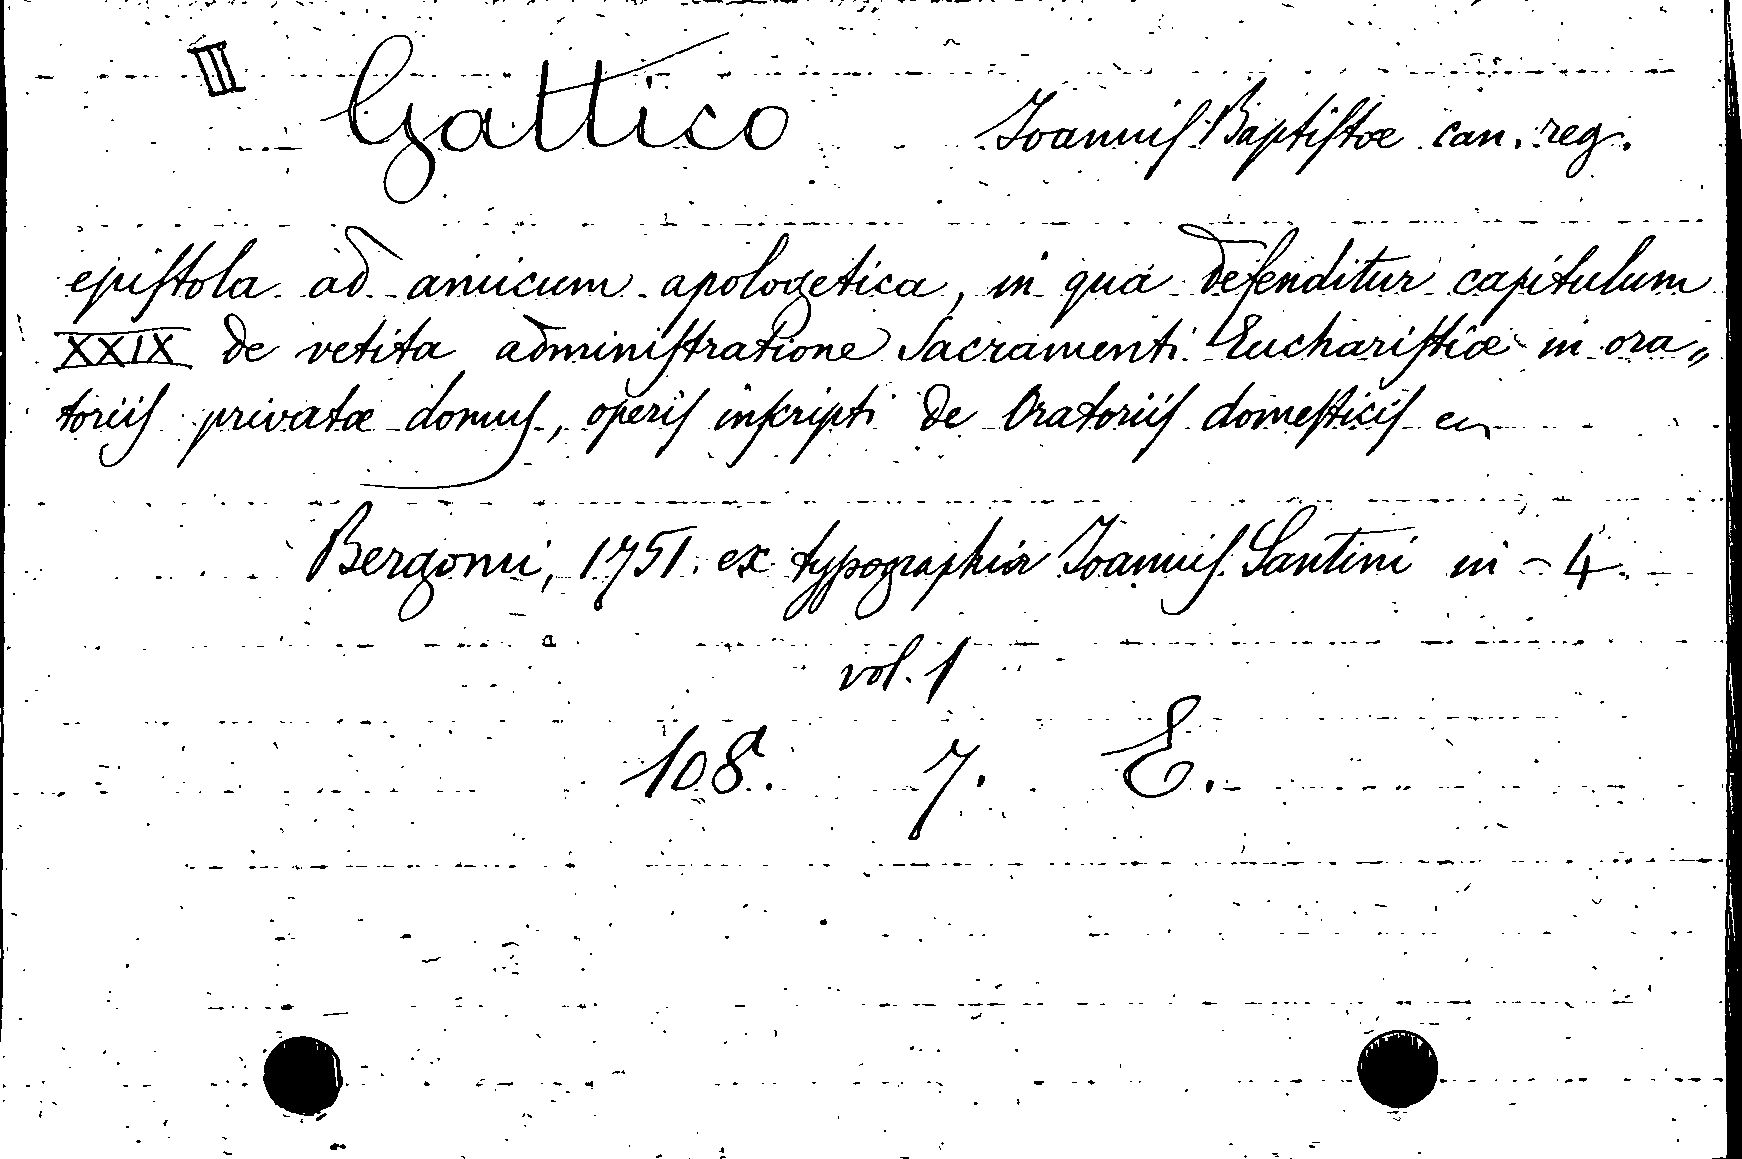 III Gattico Joannis Baptistæ can. reg.
epistola ad amicum apologetica, in qua defenditur capitulum
XXIX de vetita administratione Sacramenti Eucharistiæ in ora„
toriis privatæ domus, operis inscripti de Oratoriis domesticis
Bergomi, 1751. ex typographia Joannis Santini in-4.
vol. 1
108. 7. E.